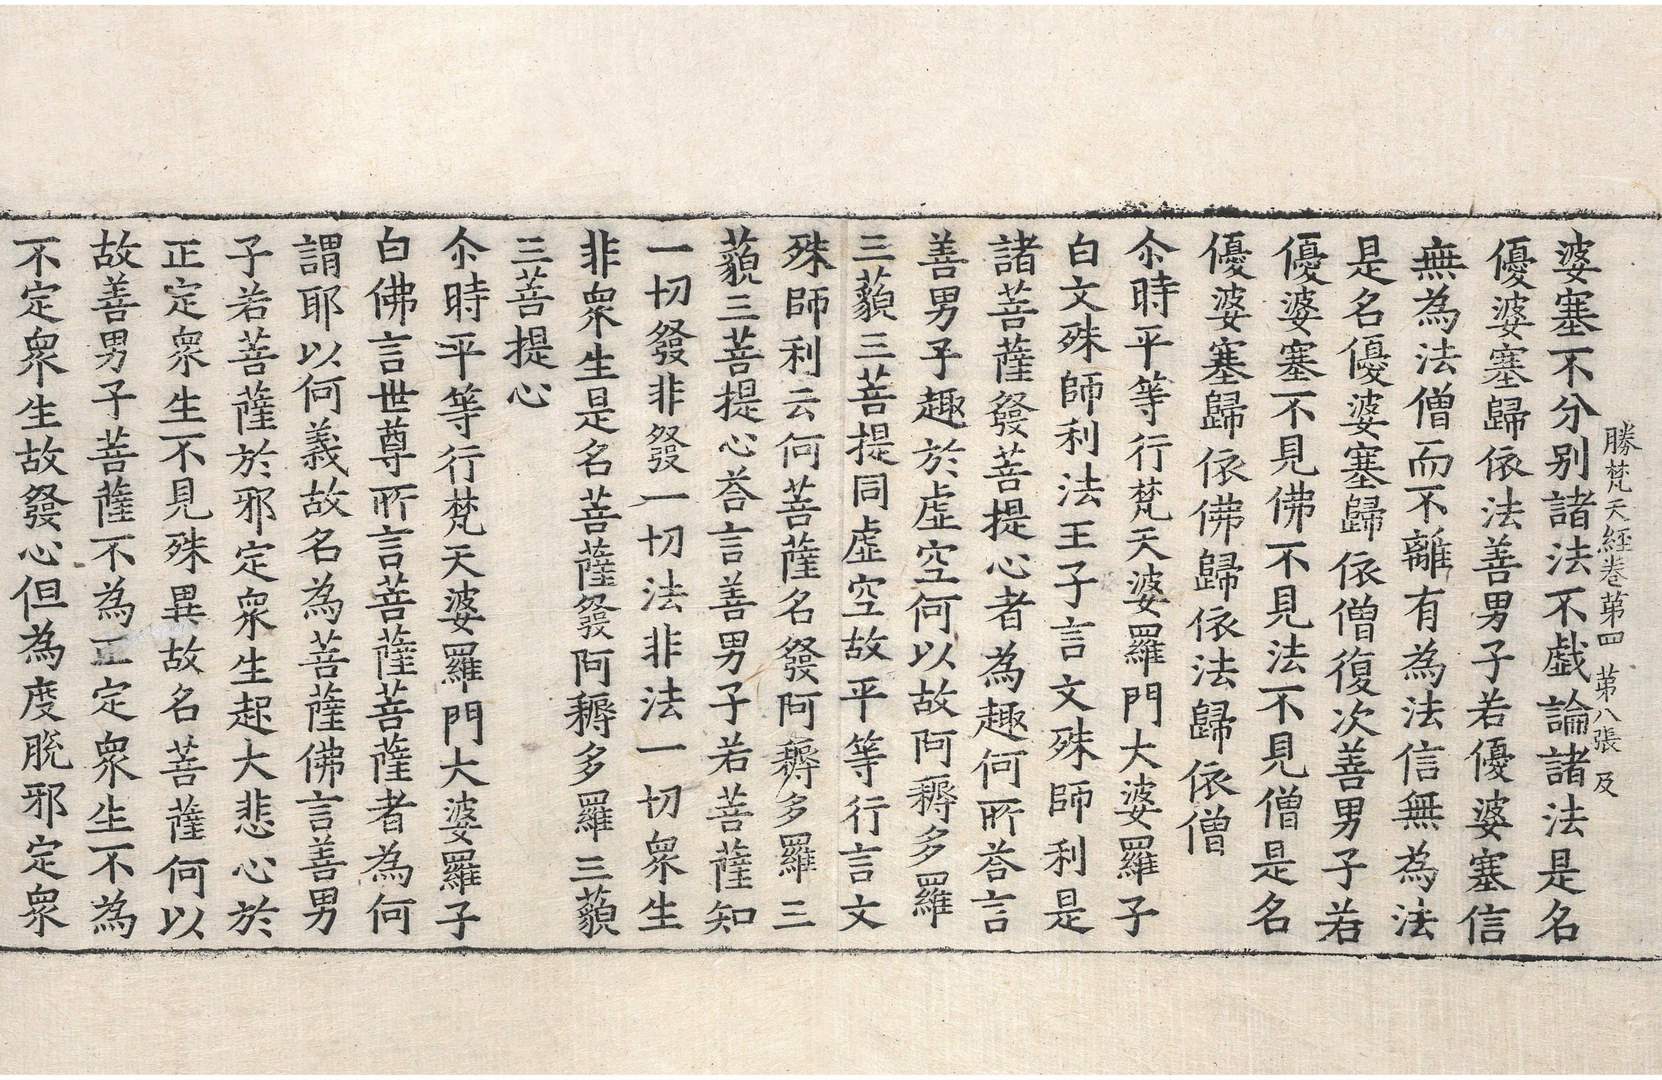 勝梵天經卷第四　第八張　及
婆塞不分别諸法不戱論諸法是名
優婆塞歸依法善男子若優婆塞信
無為法僧而不離有為法信無為法
是名優婆塞歸依僧復次善男子若
優婆塞不見佛不見法不見僧是名
優婆塞歸依佛歸依法歸依僧
尒時平等行梵天婆羅門大婆羅子
白文殊師利法王子言文殊師利是
諸菩薩發菩提心者為趣何所荅言
善男子趣於虛空何以故阿耨多羅
三藐三菩提同虛空故平等行言文
殊師利云何菩薩名發阿耨多羅三
藐三菩提心荅言善男子若菩薩知
一切發非發一切法非法一切衆生
非衆生是名菩薩發阿耨多羅三藐
三菩提心
尒時平等行梵天婆羅門大婆羅子
白佛言世尊所言菩薩菩薩者為何
謂耶以何義故名為菩薩佛言善男
子若菩薩於邪定衆生起大悲心於
正定衆生不見殊異故名菩薩何以
故善男子菩薩不為正定衆生不為
不定衆生故發心但為度脫邪定衆